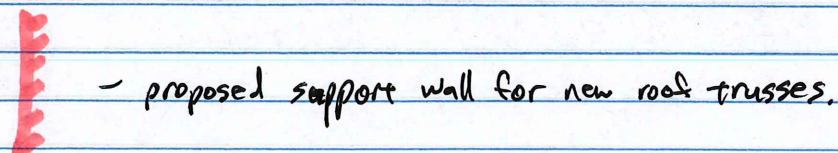 - proposed support wall for new roof trusses.